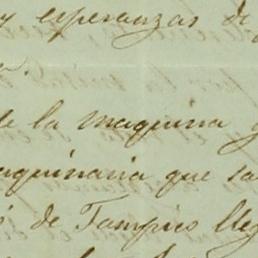 y esperanzas de
de la maquina y
maquinaria que sa
de Tampico lleg